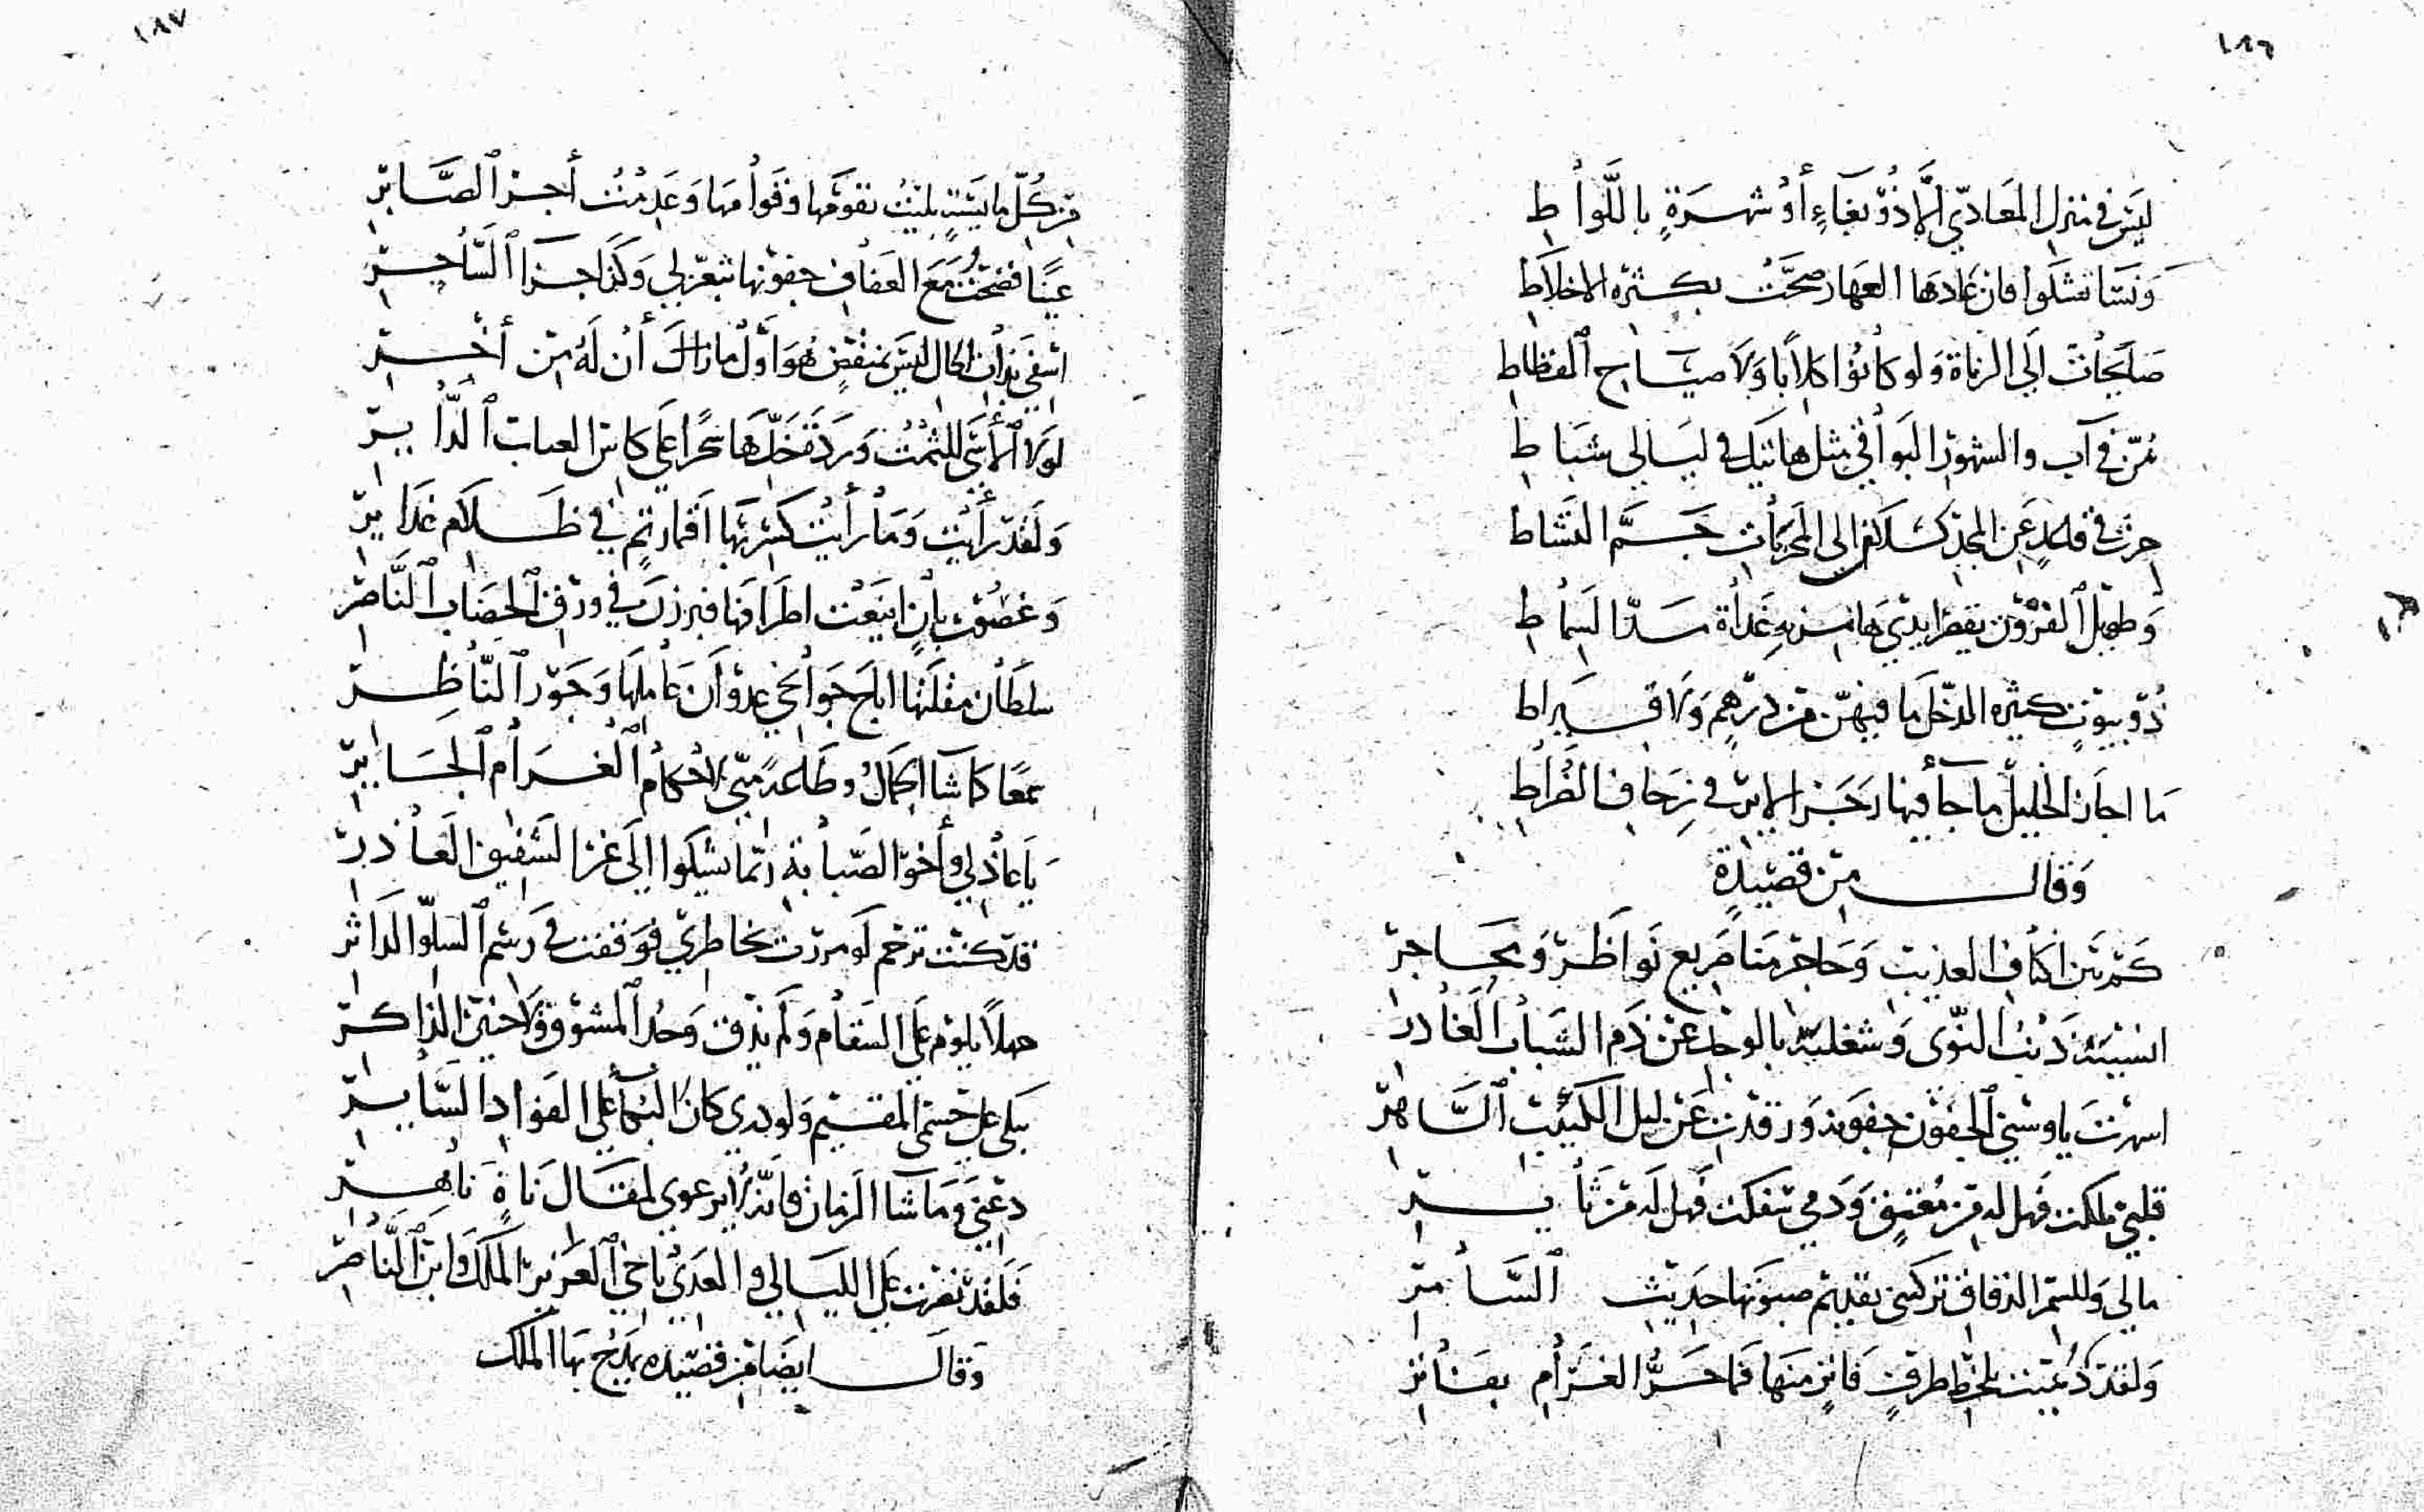 ١٨٦
ليس في منزل المعادي الا ذو بغاء أو شهرة باللواط
ونسا تشكوا فان عادها العهار صحت بكثرة الاخلاط
صابحات الى الزناة ولو كانوا كلابا ولا صياح القطاط
في آب والشهور البواقي مثل هاتيك في ليالي شباط
عن المجد كسلان الى المخزيات جم النشاط
وطويل القرون يقصر ايدي غداة مد السماط
ذو بيوت كثيرة الدخل ما فيهن من درهم ولا قيراط
ما اجاز الخليل ما جا فيها رجز الاير في زحاف الضراط
وقال من قصيدة
كم بين اكناف العذيب وحاجر منا مريع نواظر ومحاجر
انسيته ذنب النوى وشغلته بالوجد عن ذم الشباب الغادر
اسهرت يا وسني الجفون جفونه ورقدت عن ليل الكئيب الساهر
قلبي ملكت فهل له من معتق ودمي سفكت فهل له من ثاير
مالي وللسمر الدقاق تركني بقديم صبوتها حديث السامر
ولقد دعيت بلحظ طرف فاتر منها فما حر الغرام بفاتر
١٨٧
من كل مايسة بليت بقومها وقوامها وعدمت أجر الصابر
عينا فضحت مع العفاف جفونها شعر لي وكذا جزا الساحر
اسفي بدا ان الحال ليس بمنقض هو أول مازال أن له من أخر
لولا الأسى للثمت ورد نقخدها سحرا على كاس العباب الداير
ولقد رأيت وما رأيت كسربها اقمار تم في ظلام غداير
وغصون بان اينعت اطرافها فبرزن في ورق الخضاب الناضر
سلطان مقلتها اباح جوانحي عدوان عاملها وجور الناظر
سمعا كما شا الجمال وطاعة مني لاحكام الغرام الجاير
يا عاذلي وأخو الصبابة ربما يشكوا الى غير الشفيق العاذر
قد كنت ترحم لو مررت بخاطري فوقفت في رسم السلو الداثر
جهلا يلوم على السقام ولم يذق وجد المشوق ولا حنين الذاكر
يبكي على جسمي المقيم ولو درى كان البكا على الفواد الساير
دعني وما شا الزمان فانه لا يرعوي لمقال ناة ناهر
فلقد نصرت على الليالي والعدى باخي العزيز الملك وابن الناصر
وقال ايضا من قصيدة يمدح بها الملك